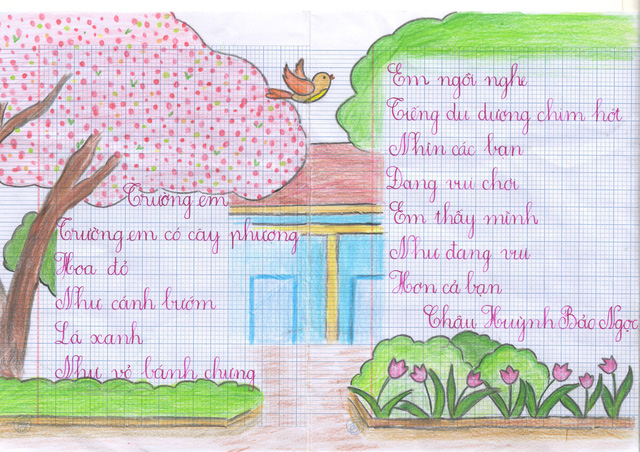 Trường em
Trường em có cây phượng
Hoa đỏ
Như cánh bướm
Lá xanh
Như vỏ bánh chưng
Em ngồi nghe
Tiếng du dương chim hót
Nhìn các bạn
Đang vui chơi
Em thấy mình
Như đang vui
Hơn cả bạn
Châu Huỳnh Bảo Ngọc